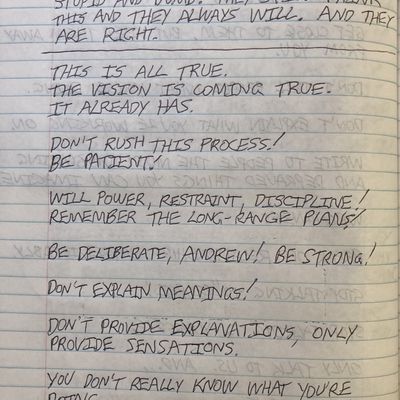 STUPID AND DUMB. THEY STILL THINK
THIS AND THEY ALWAYS WILL. AND THEY
ARE RIGHT.
THIS IS ALL TRUE.
THE VISION IS COMING TRUE.
IT ALREADY HAS.
DON'T RUSH THIS PROCESS!
BE PATIENT!
WILL POWER, RESTRAINT, DISCIPLINE!
REMEMBER THE LONG-RANGE PLANS!
BE DELIBERATE, ANDREW! BE STRONG!
DON'T EXPLAIN MEANINGS!
DON'T PROVIDE EXPLANATIONS, ONLY
PROVIDE SENSATIONS.
YOU DON'T REALLY KNOW WHAT YOU'RE
DOING